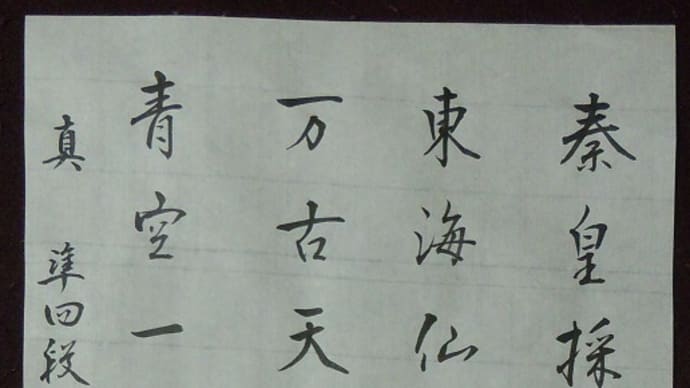 秦皇採
東海仙
万古天
青空一
真 準四段